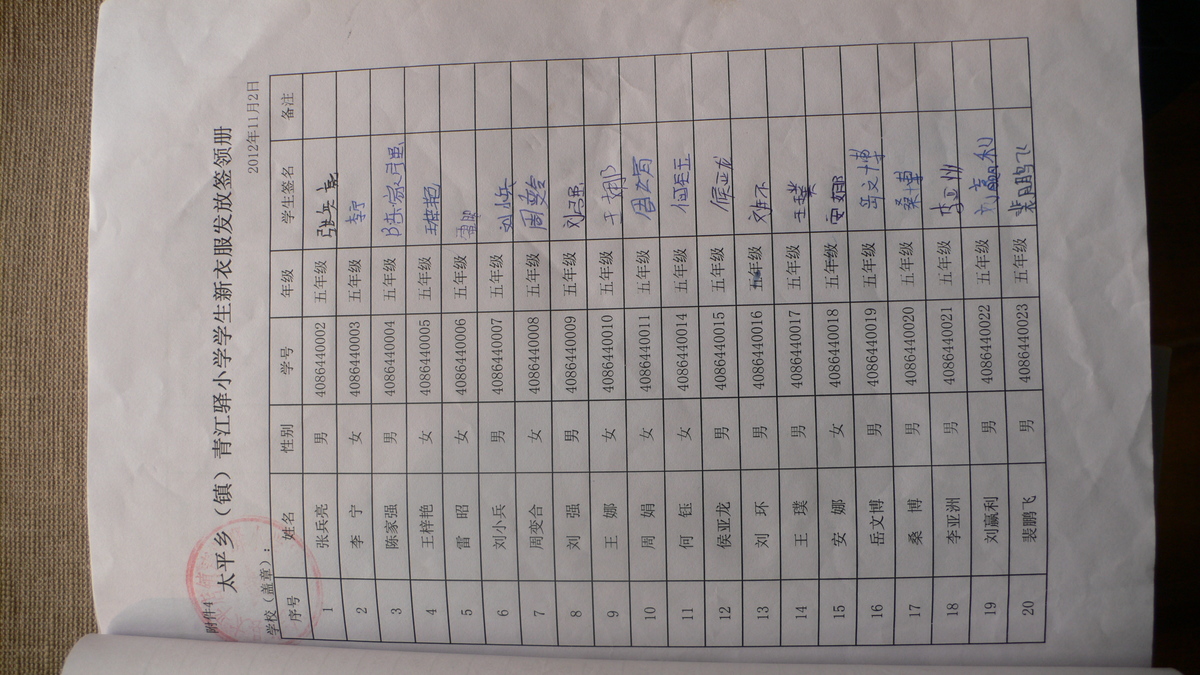 附件4
太平乡（镇）青江驿小学学生新衣服发放签领册
学校（盖章）： 2012年11月2日
序号 姓名 性别 学号 年级 学生签名 备注
1 张兵亮 男 4086440002 五年级 张兵亮
2 李宁 女 4086440003 五年级 李宁
3 陈家强 男 4086440004 五年级 陈家强
4 王梓艳 女 4086440005 五年级
5 雷昭 女 4086440006 五年级 雷昭
6 刘小兵 男 4086440007 五年级
7 周变合 女 4086440008 五年级
8 刘强 男 4086440009 五年级 刘强
9 王娜 女 4086440010 五年级 王娜
10 周娟 女 4086440011 五年级
11 何钰 女 4086440014 五年级
12 侯亚龙 男 4086440015 五年级 侯亚龙
13 刘环 男 4086440016 五年级
14 王璞 男 4086440017 五年级 王璞
15 安娜 女 4086440018 五年级 安娜
16 岳文博 男 4086440019 五年级 岳文博
17 桑博 男 4086440020 五年级 桑博
18 李亚洲 男 4086440021 五年级
19 刘赢利 男 4086440022 五年级
20 裴鹏飞 男 4086440023 五年级 裴鹏飞